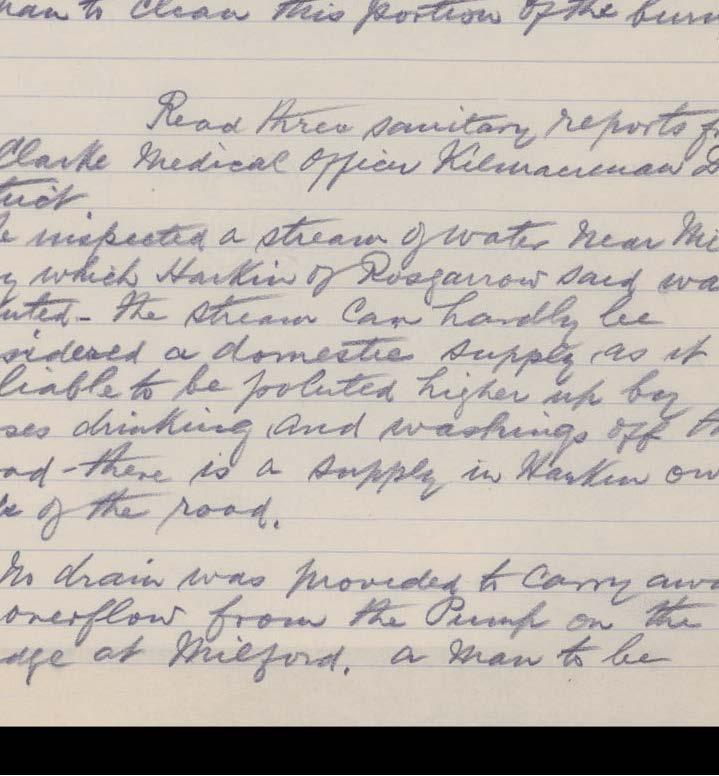 man to clean this portion of the burn
Read three sanitary reports f
Clarke Medical Officer Kilmacrenan D
trict
e inspected a stream of water near Mi
y which Harkin of Rosgarrow said wa
uted - the stream can hardly be
sidered a domestic supply as it
liable to be poluted higher up by
ses drinking and washings off th
ad - there is a supply in Harkin ow
de of the road.
No drain was provided to carry awa
overflow from the Pump on the
dge at Milford. a man to be